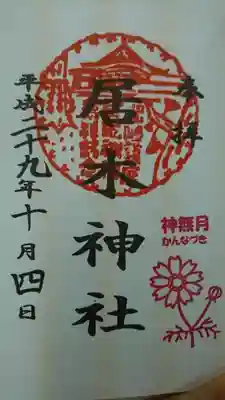 奉拝
居木神社
平成二十九年十月四日
神無月
かんなづき